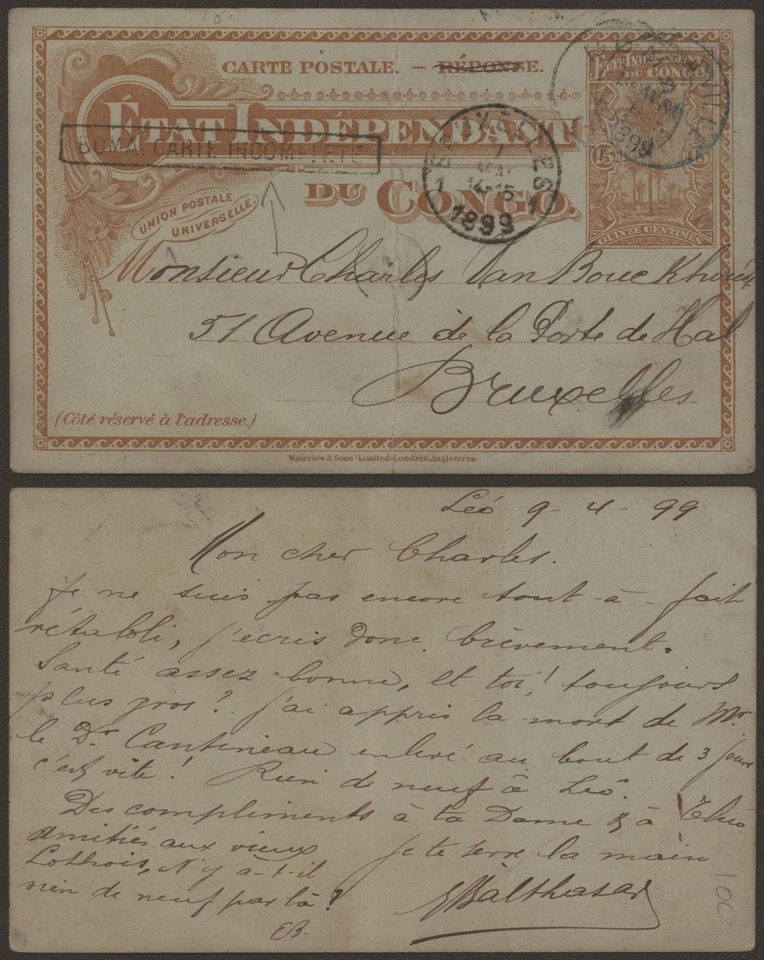 CARTE POSTALE. — RÉPONSE.
ÉTAT INDÉPENDANT
DU CONGO.
BOMA. CARTE INCOMPLETE
UNION POSTALE
UNIVERSELLE.
ETAT INDEPENDANT
DU CONGO
15
15
QUINZE CENTIMES
1899
IXELLES
1
MAI
14-15
1
1
1899
Monsieur Charles Van
51 Avenue de la Porte de Hal
Bruxelles
(Côté réservé à l'adresse.)
Waterlow & Sons Limited, Londres, Angleterre.
Léo 9-4-99
Mon cher Charles.
Je ne suis pas encore tout-à-fait
rétabli, j'écris donc brèvement.
Santé assez bonne, et toi! toujours
plus gros? j'ai appris la mort de Mr
le Dr Cantineau enlevé au bout de 3 jours
c'est vite! Rien de neuf à Léo.
Des compliments à ta Dame & à Théo
amitiés aux vieux
Je te serre la main
N'y a-t-il
rien de neuf par là?
EBalthasar
EB.
100